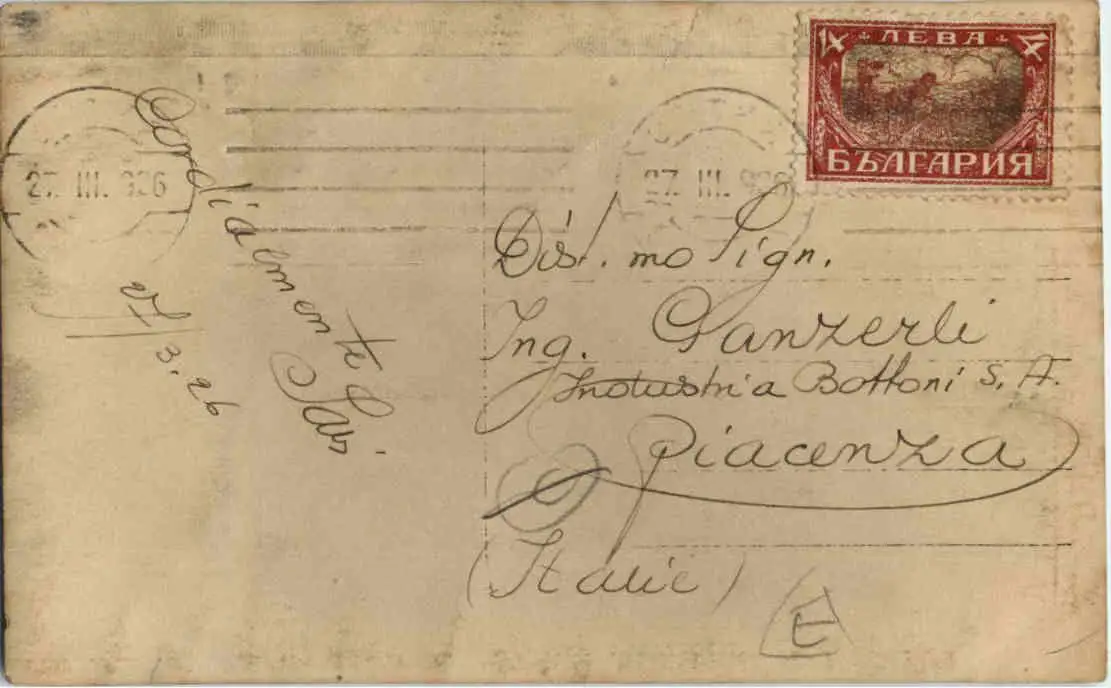 1 ЛЕВА 1
БЪЛГАРИЯ
27. III. 926
27. III. 926
Cordialmente
27/3.26
Dist.mo Sign.
Ing. Ganzerli
Industria Bottoni S. A.
Piacenza
(Italie)
E